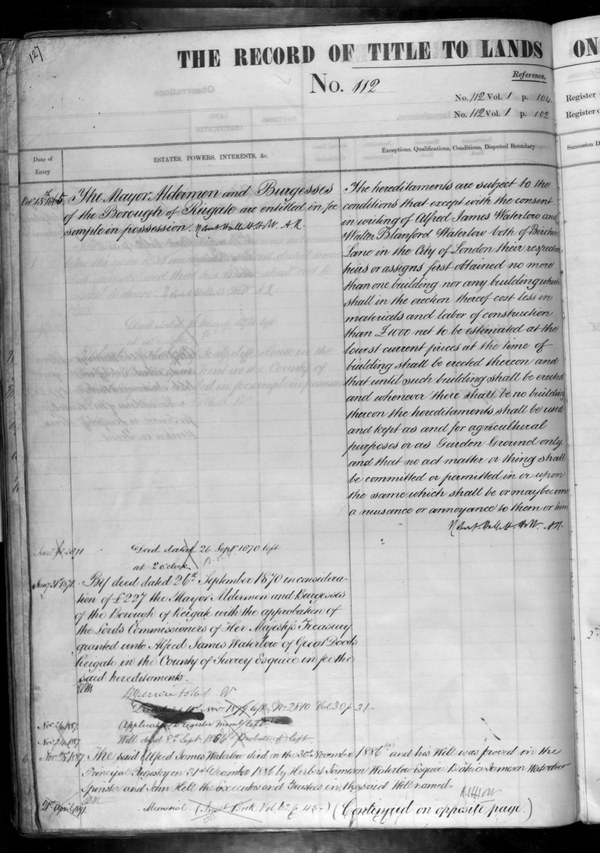 127
THE RECORD OF TITLE TO LANDS
ON
No. 112
Reference.
No. 112 Vol. 1 p. 104
No. 112 Vol. 1 p. 102
Register
Register
Date of
Entry
ESTATES, POWERS, INTERESTS, &c.
Exceptions, Qualifications, Conditions, Disputed Boundary
Succession
The Mayor Aldermen and Burgesses
of the Borough of Reigate are entitled in fee
simple in possession.
The hereditaments are subject to the
conditions that except with the consent
in writing of Alfred James Waterlow and
Walter Blanford Waterlow both of Birchin
Lane in the City of London their respective
heirs or assigns first obtained no more
than one building nor any building which
shall in the erection thereof cost less in
materials and labor of construction
than £1000 not to be estimated at the
lowest current prices at the time of
building shall be erected thereon and
that until such building shall be erected
and whenever there shall be no building
thereon the hereditaments shall be used
and kept as and for agricultural
purposes or as Garden Ground only
and that no act matter or thing shall
be committed or permitted in or upon
the same which shall be or may become
a nusance or annoyance to them or
Deed dated 26 Sept 1870 left
at 2 oclock
By deed dated 26th September 1870 in considera-
tion of £227 the Mayor Aldermen and Burgesses
of the Borough of Reigate with the approbation of
the Lords Commissioners of Her Majesty's Treasury
granted unto Alfred James Waterlow of Great Doods
Reigate in the County of Surrey Esquire in fee the
said hereditaments.
left
Will dated 8th Sept 1864 Probate left
The said Alfred James Waterlow died on the 30th November 1886 and his Will was proved in the
Principal Registry on 31st December 1886 by Herbert Jameson Waterlow Esquire Jameson Waterlow
Spinster and John Hell the Executors and Trustees in the said Will named
21st April 1897
Memorial
(Continued on opposite page.)